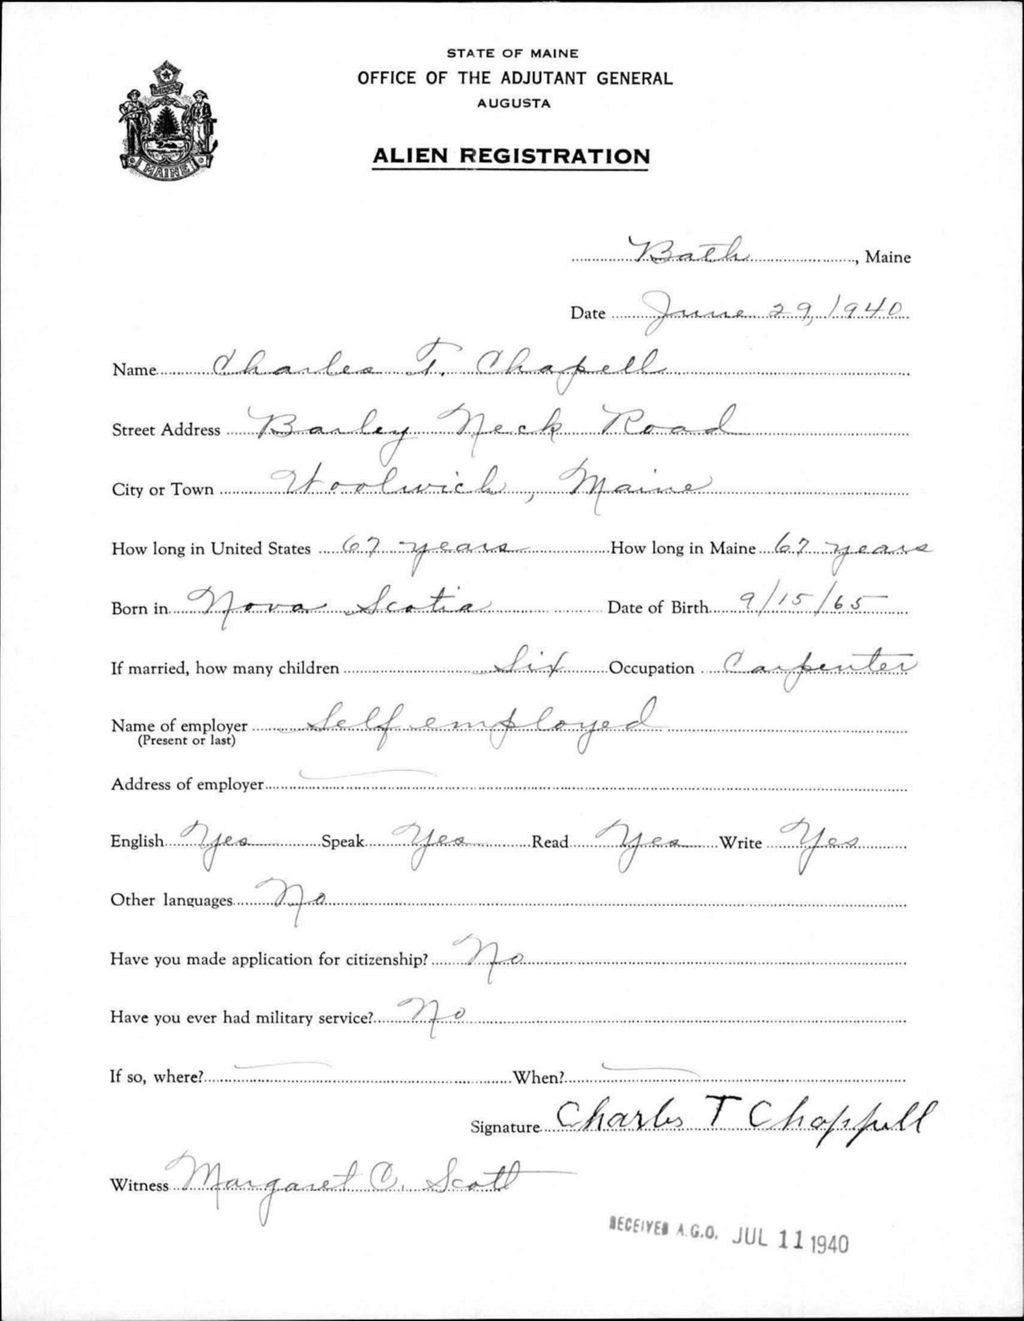 STATE OF MAINE
OFFICE OF THE ADJUTANT GENERAL
AUGUSTA
ALIEN REGISTRATION
MAINE
Bath, Maine
Date June 29, 1940
Name Charles T. Chapell
Street Address Barley Neck Road
City or Town Woolwich, Maine
How long in United States 67 years How long in Maine 67 years
Born in Nova Scotia Date of Birth 9/15/65
If married, how many children Six Occupation Carpenter
Name of employer Self employed
(Present or last)
Address of employer
English Yes Speak Yes Read Yes Write Yes
Other languages No
Have you made application for citizenship? No
Have you ever had military service? No
If so, where? When?
Signature Charles T Chappell
Witness Margaret C. Scott
RECEIVED A.G.O. JUL 11 1940